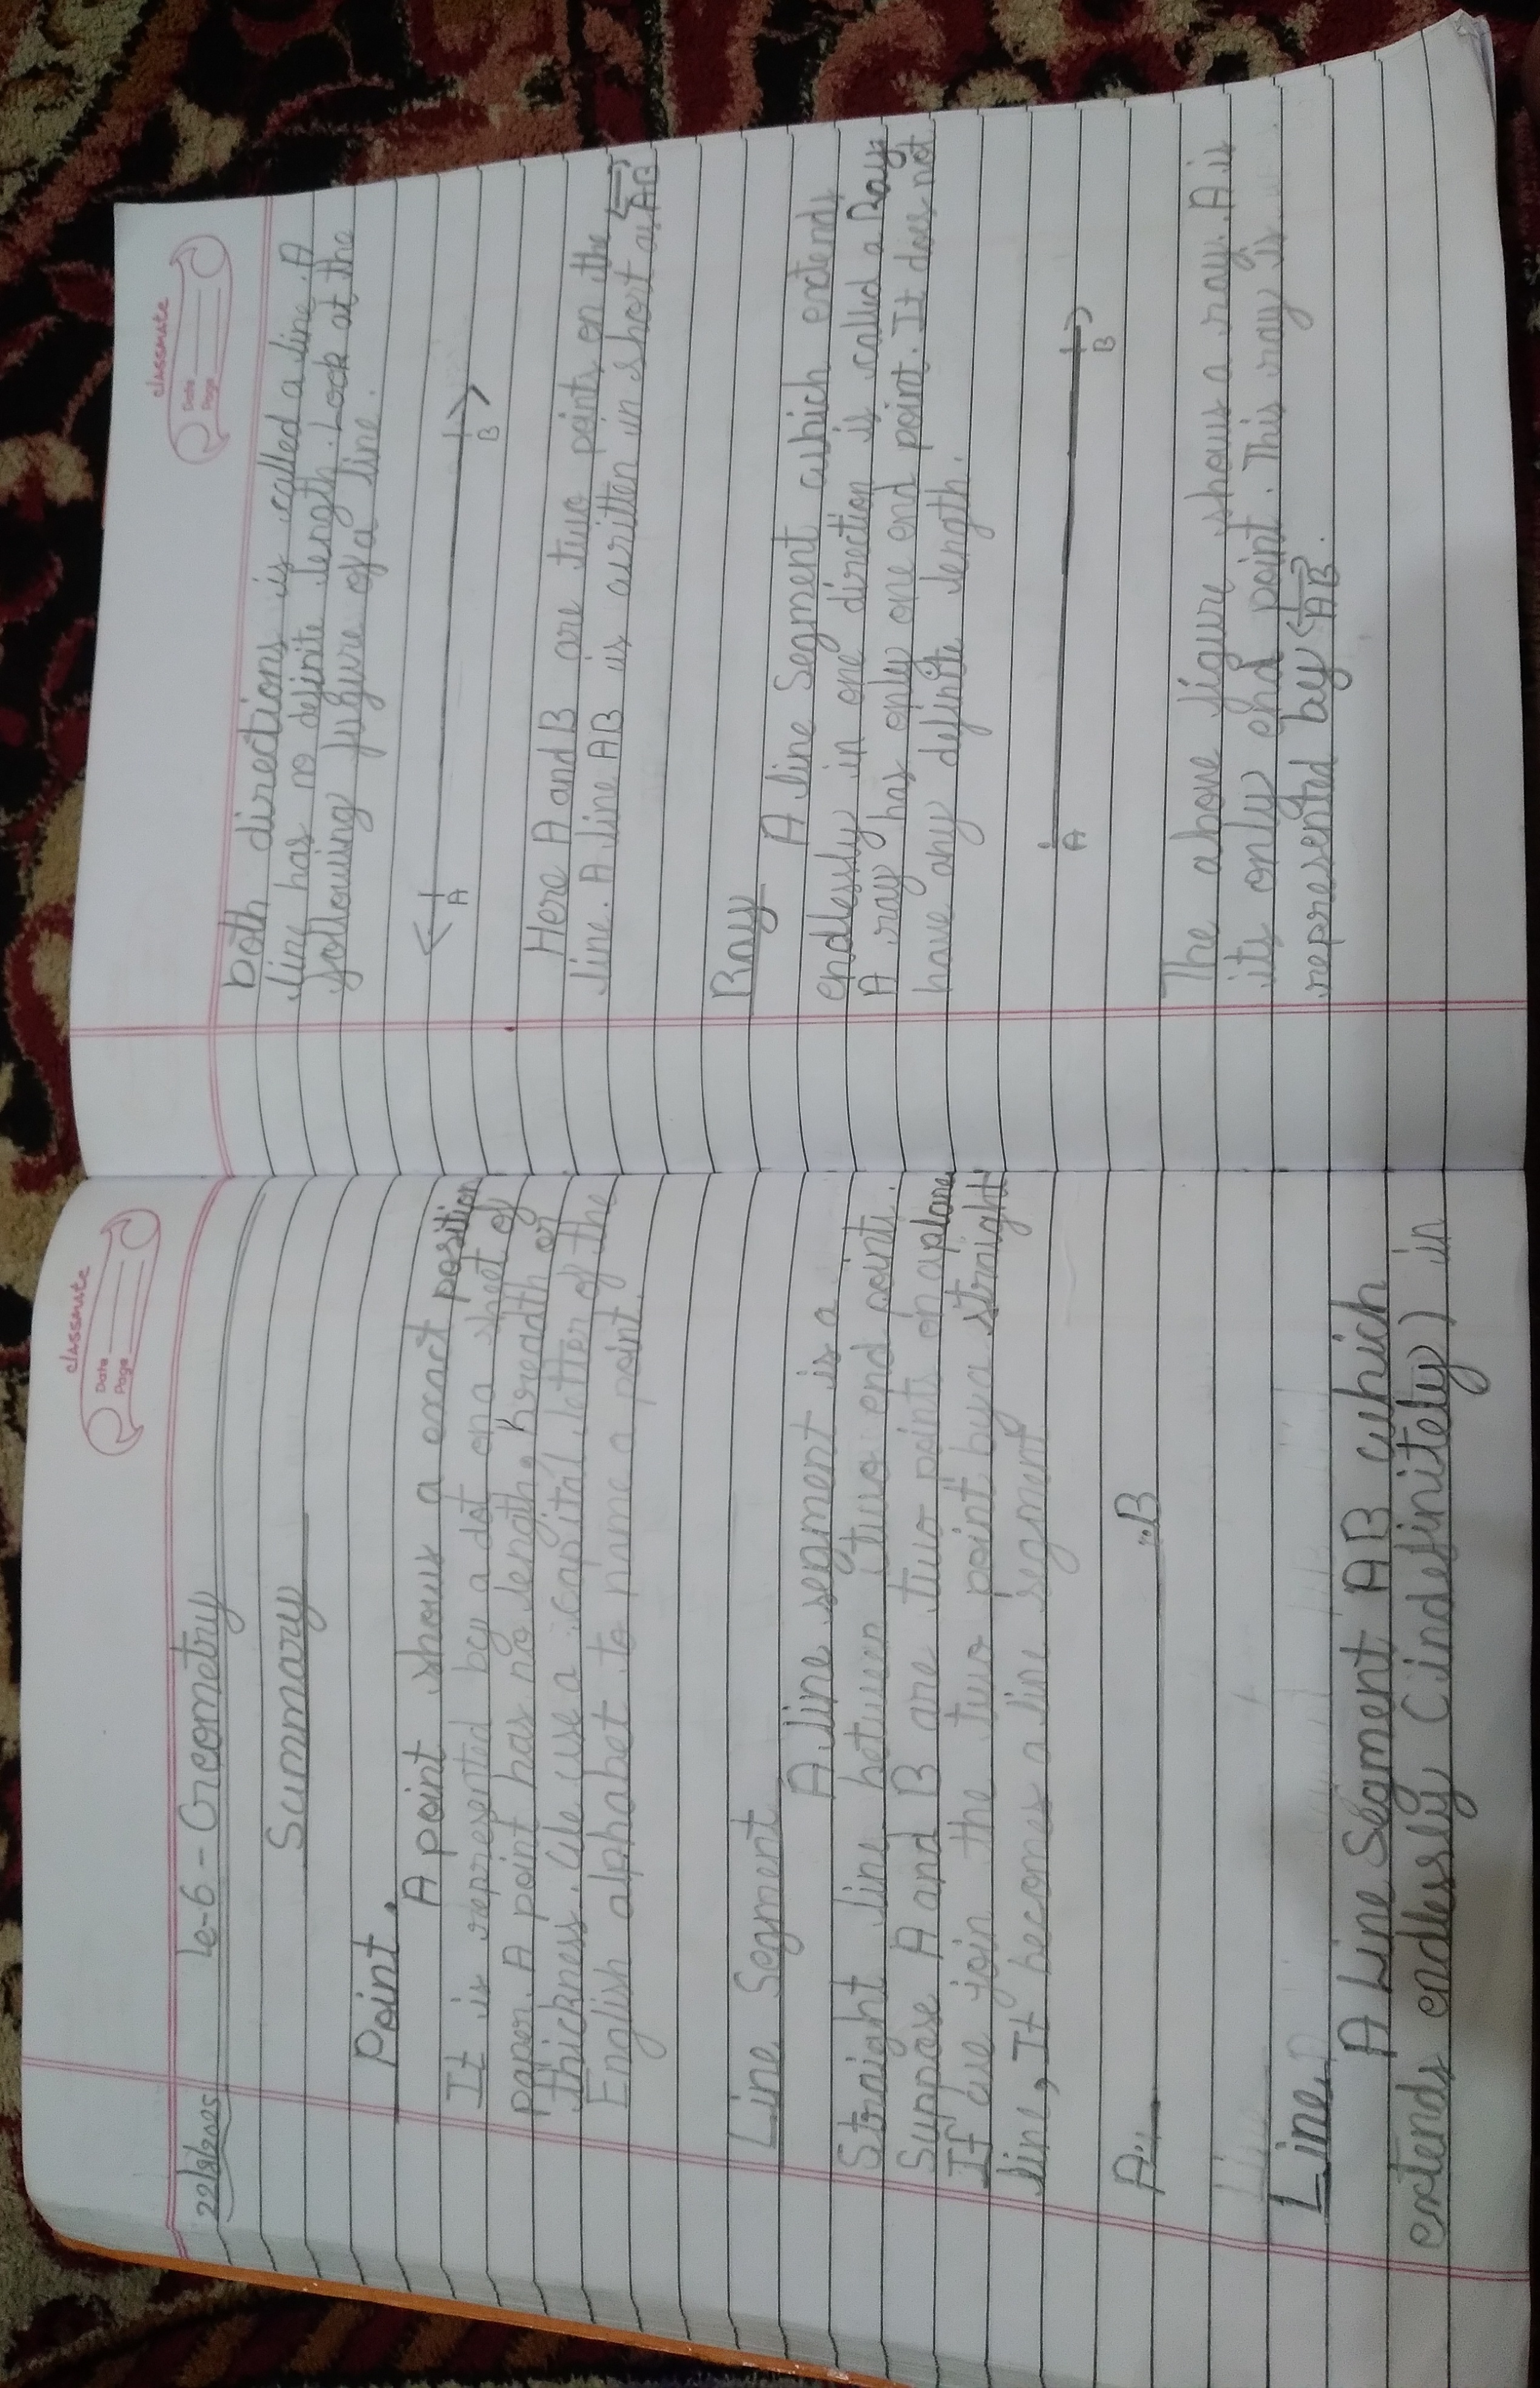 classmate
Date
Page
22/8/2025 Le-6 - Greometry
Summary
Point.
A point shows a exact position
It is represented by a dot on a sheet of
paper. A point has no length, breadth or
thickness. We use a capital letter of the
English alphabet to name a point.
Line Segment
A line segment is a
Straight line between two end points.
Suppose A and B are two points on a plane
If we join the two point by a straight
line, It becomes a line segment
A B
Line.
A Line Segment AB which
extends endlessly (indefinitely) in
classmate
Date
Page
both directions is called a line. A
line has no definite length. Look at the
following fugure of a line.
A B
Here A and B are two points on the
line. A line AB is written in short as AB
Ray
A line Segment which extends
endlessly in one direction is called a Ray.
A ray has only one end point. It does not
have any definite length.
A B
The above figure shows a ray. A is
its only end point. This ray is
represented by AB.